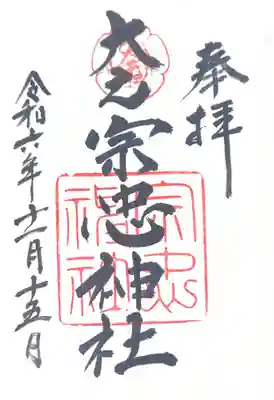 奉拝
大元宗忠神社
宗忠神社
令和六年十一月十五日